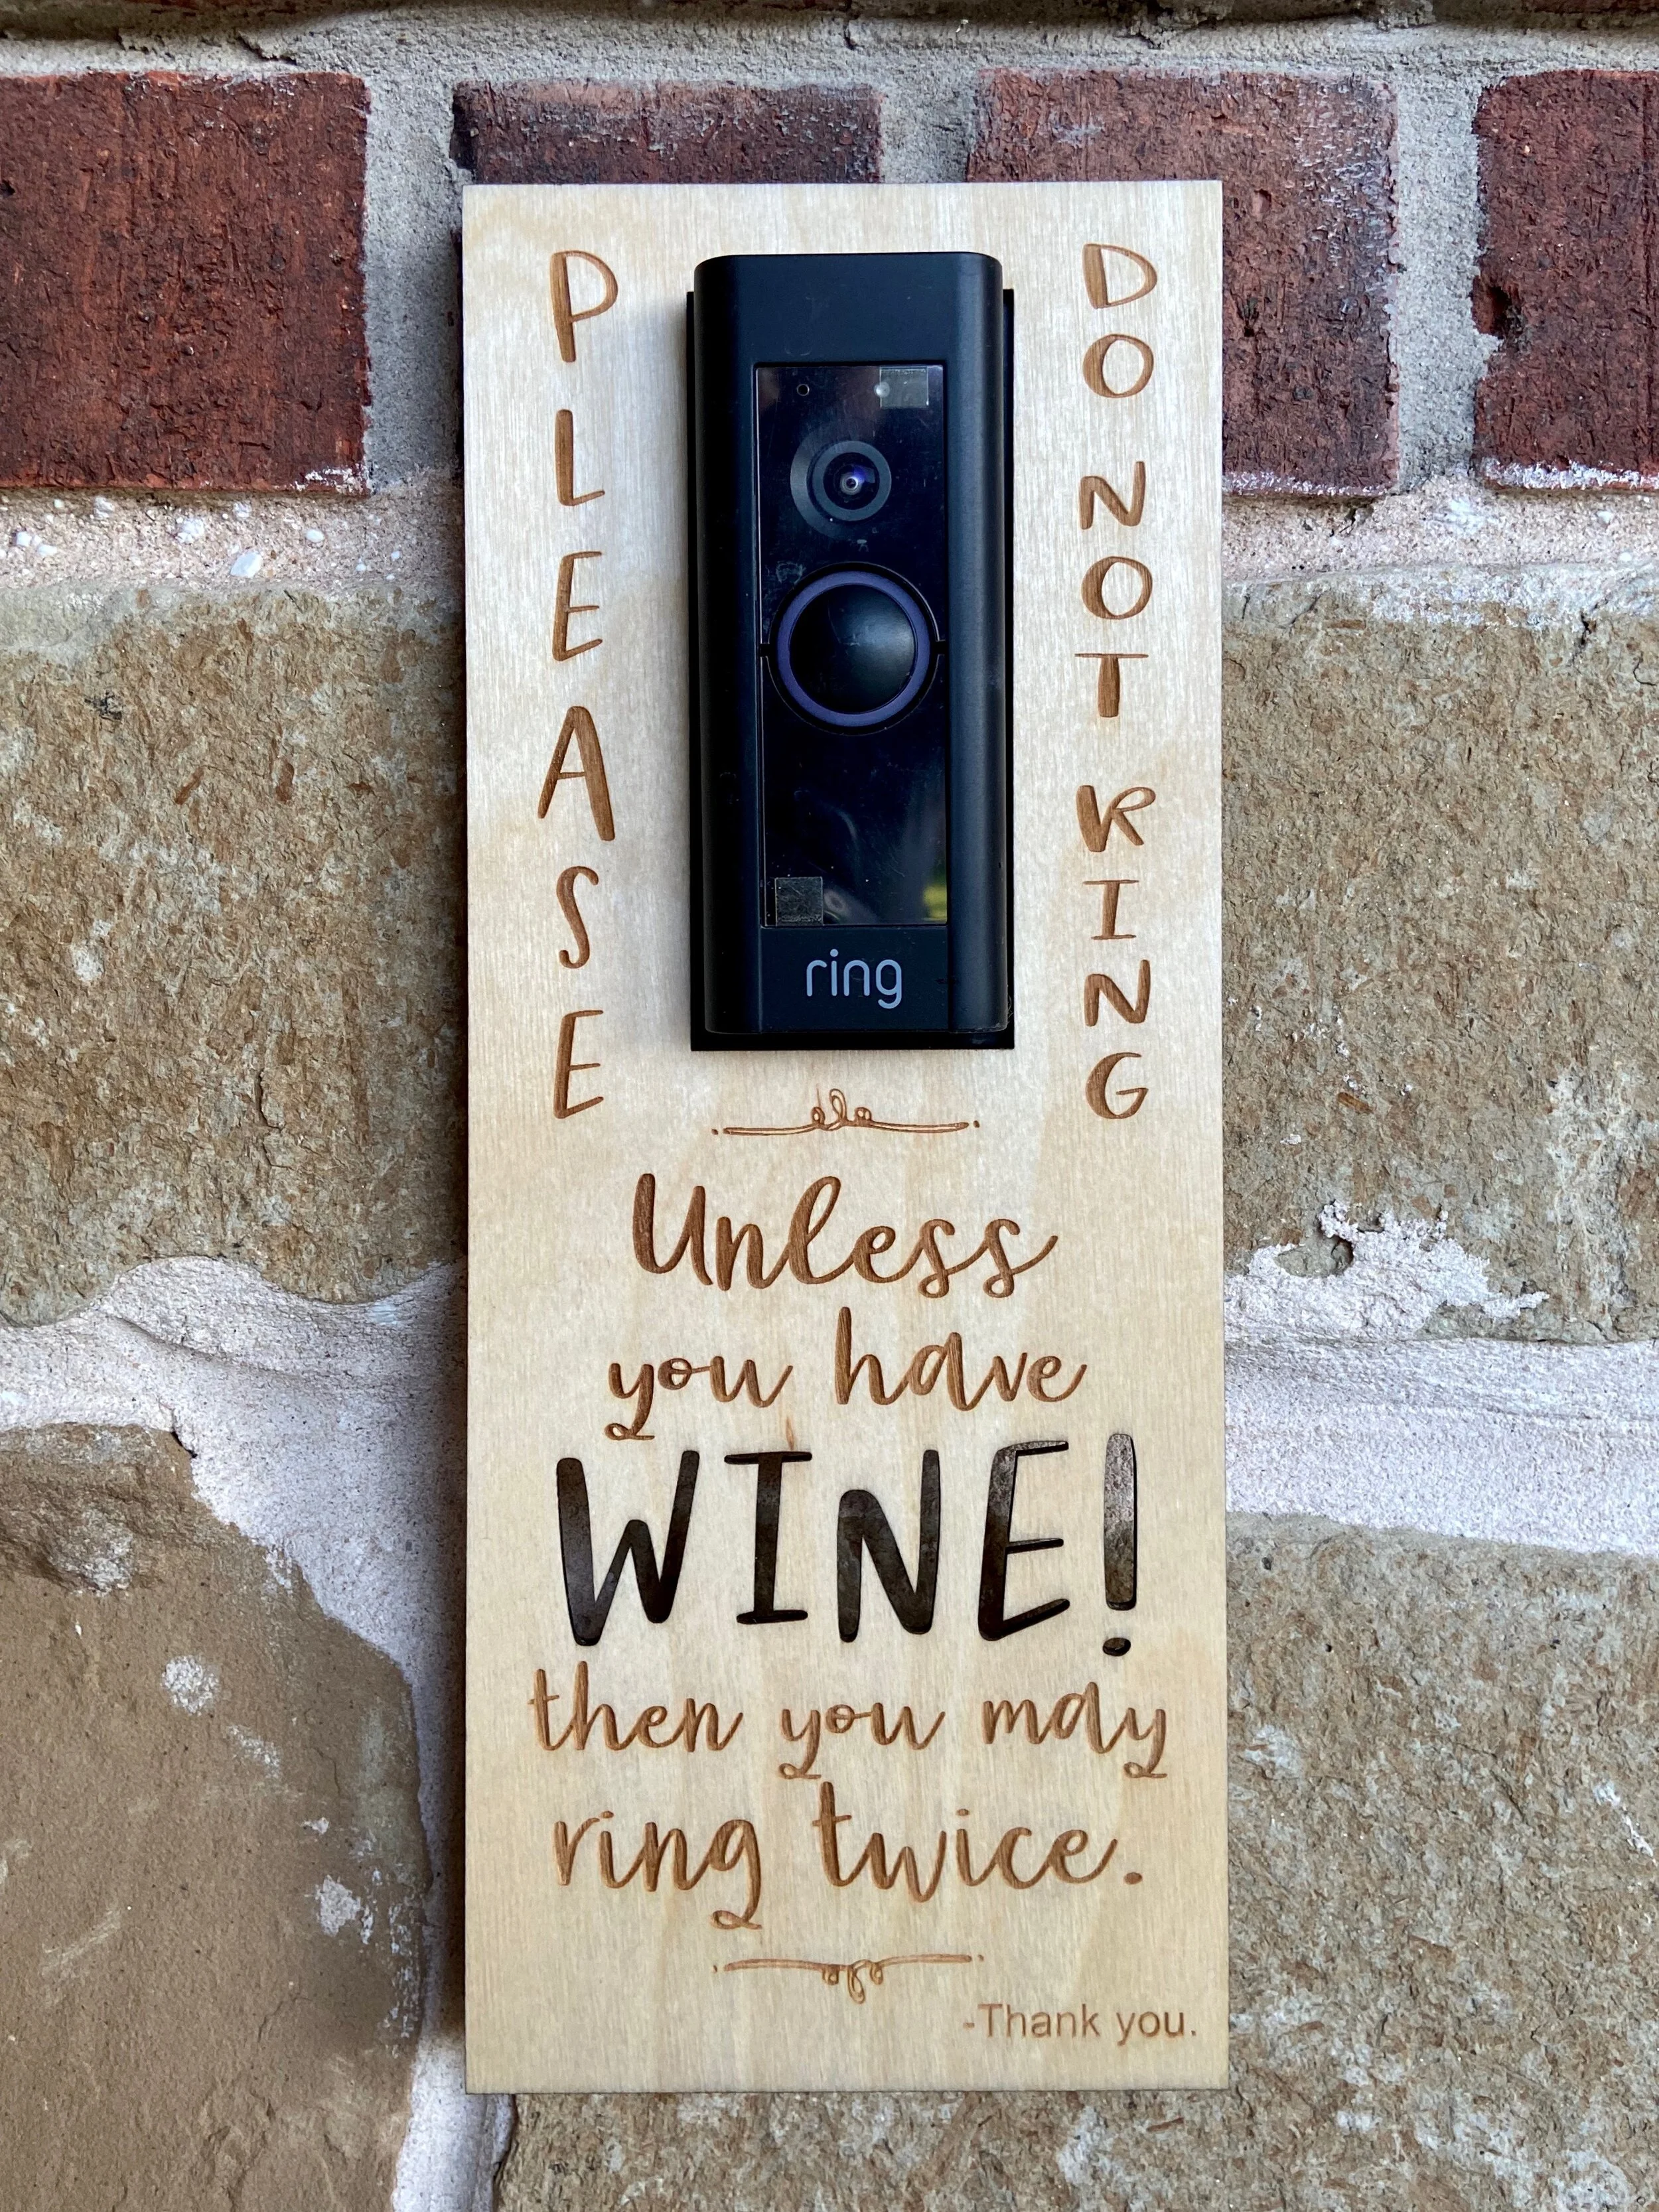 PLEASE
DO NOT RING
ring
Unless
you have
WINE!
then you may
ring twice.
-Thank you.